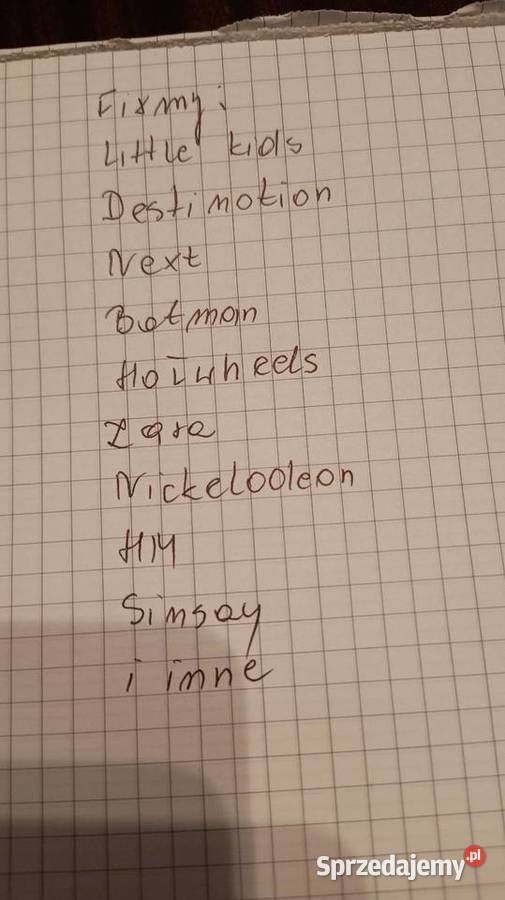 Firmy:
Little kids
Destimotion
Next
Batman
Hotwheels
Zara
Nickelodeon
HM
Sinsay
i inne
Sprzedajemy.pl